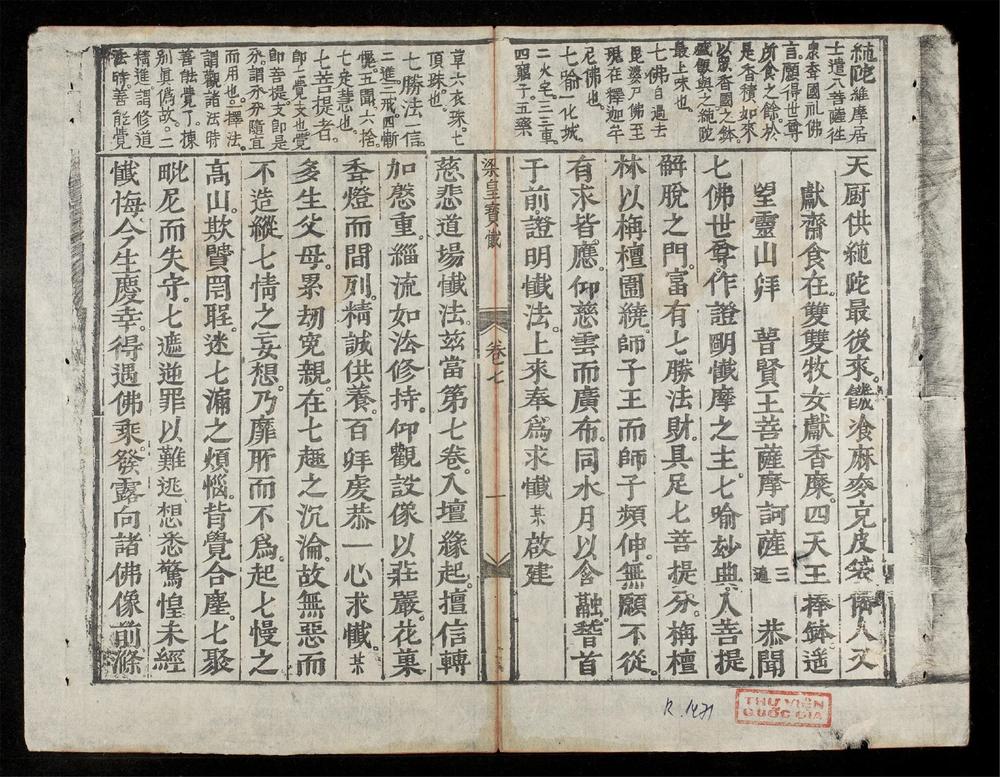 純陀維摩居
士遣八菩薩徃
衆香國礼佛
言願得世尊
所食之餘於
是香積如來
以衆香國之鉢
盛飯與之純陀
最上味也。
七佛自過去
毘婆尸佛王
現在釋迦牟
尼佛也
七喻一化城
二火宅三三車
四窮子五藥
天厨供純陀最後來。饑飡麻麥克皮袋兩人又
獻齋食在雙雙牧女獻香糜。四天王捧鉢遥
望靈山拜 普賢王菩薩摩訶薩三遍 恭聞
七佛世尊。作證明懺摩之主。七喻玅典。人菩提
解脫之門。富有七勝法財。具足七菩提分。栴檀
林以栴檀圍繞。師子王而師子頻伸。無願不從。
有求皆應。仰慈雲而廣布。同水月以含融。稽首
于前。證明懺法。上來奉爲求懺某啟建
梁皇寶懺
卷七
一
草六衣珠。七
頂珠也。
七勝法一信
二進。三戒。四慚
愧。五聞。六捨
七定慧也。
七菩提者。
即七覺支也覺
即菩提。支即是
分。謂分分隨宜
而用也。一擇法
謂觀諸法時
善能覺了。揀
別真僞故。二
精進謂修道
法時。善能覺
慈悲道場懺法。兹當第七卷。入壇緣起。擅信轉
加慇重。緇流如法修持。仰觀設像以莊嚴。花菓
香燈而間列。精誠供養。百拜虔恭。一心求懺。某
多生父母。累刼寃親。在七趣之沉淪。故無惡而
不造。縱七情之妄想。乃靡所而不爲。起七慢之
高山。欺賢罔聖。迷七漏之煩惱。背覺合塵。七聚
毗尼而失守。七遮逆罪以難逃。想悉驚惶未經
懺悔。今生慶幸。得遇佛乘。發露向諸佛像前。滌
R.1471
THƯ VIỆN
QUỐC GIA